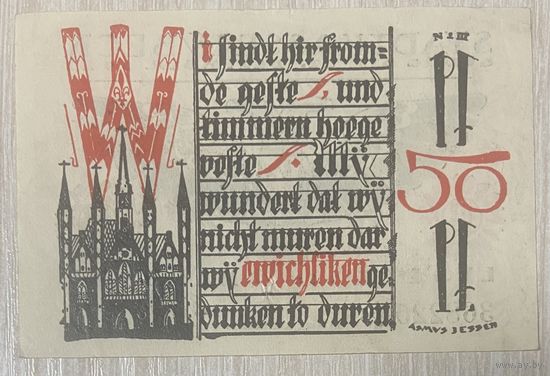 Wi sindt hir from=
de geste /, und
timmern hoege
veste /. My
wundert dat wÿ
nicht muren dar
wÿ ewichliken ge=
dunken to duren
N III
Pf
50
Pf
ASMUS JESSEN
www.ay.by